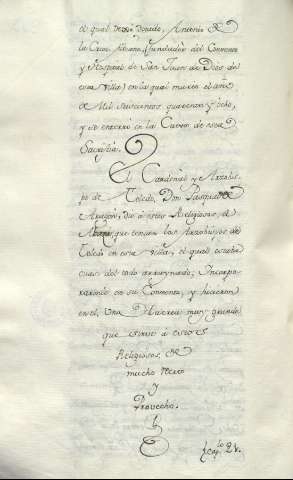 el qual Donado, Antonio de
la Cruz, (fundador del Convento
y Hospital de San Juan de Dios de
esta villa) en la qual murio el año
de Mil Seiscientos quarenta y ocho,
y se enterró en la Cueva de esta
Sacristia.
El Cardenal y Arzobis-
po de Toledo, Don Pasqual de
Aragon, dio á estos Religiosos, el
que tenian los Arzobispos de
Toledo en esta villa, el qual estaba
casi del todo arruynado; Incorpo-
raronle en su Convento, y hicieron
en el, una Huerta muy grande
que sirve á estos
Religiosos, de
mucho recreo
y
Provecho.
Cap.lo 21.